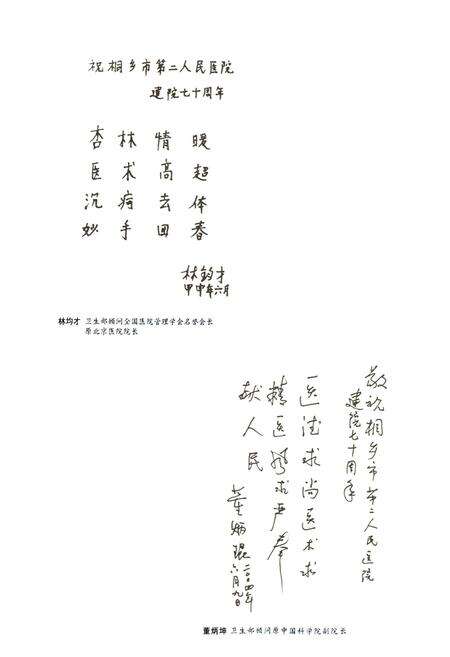 祝桐乡市第二人民医院
建院七十周年
杏林情暖
医术高超
沉疴去体
妙手回春
林钧才
甲申年六月
林均才 卫生部顾问全国医院管理学会名誉会长
原北京医院院长
敬祝桐乡市第二人民医院
建院七十周年
医德求尚医术求
精医风求严奉
献人民
董炳琨
二〇〇四年
六月九日
董炳坤 卫生部顾问原中国科学院副院长